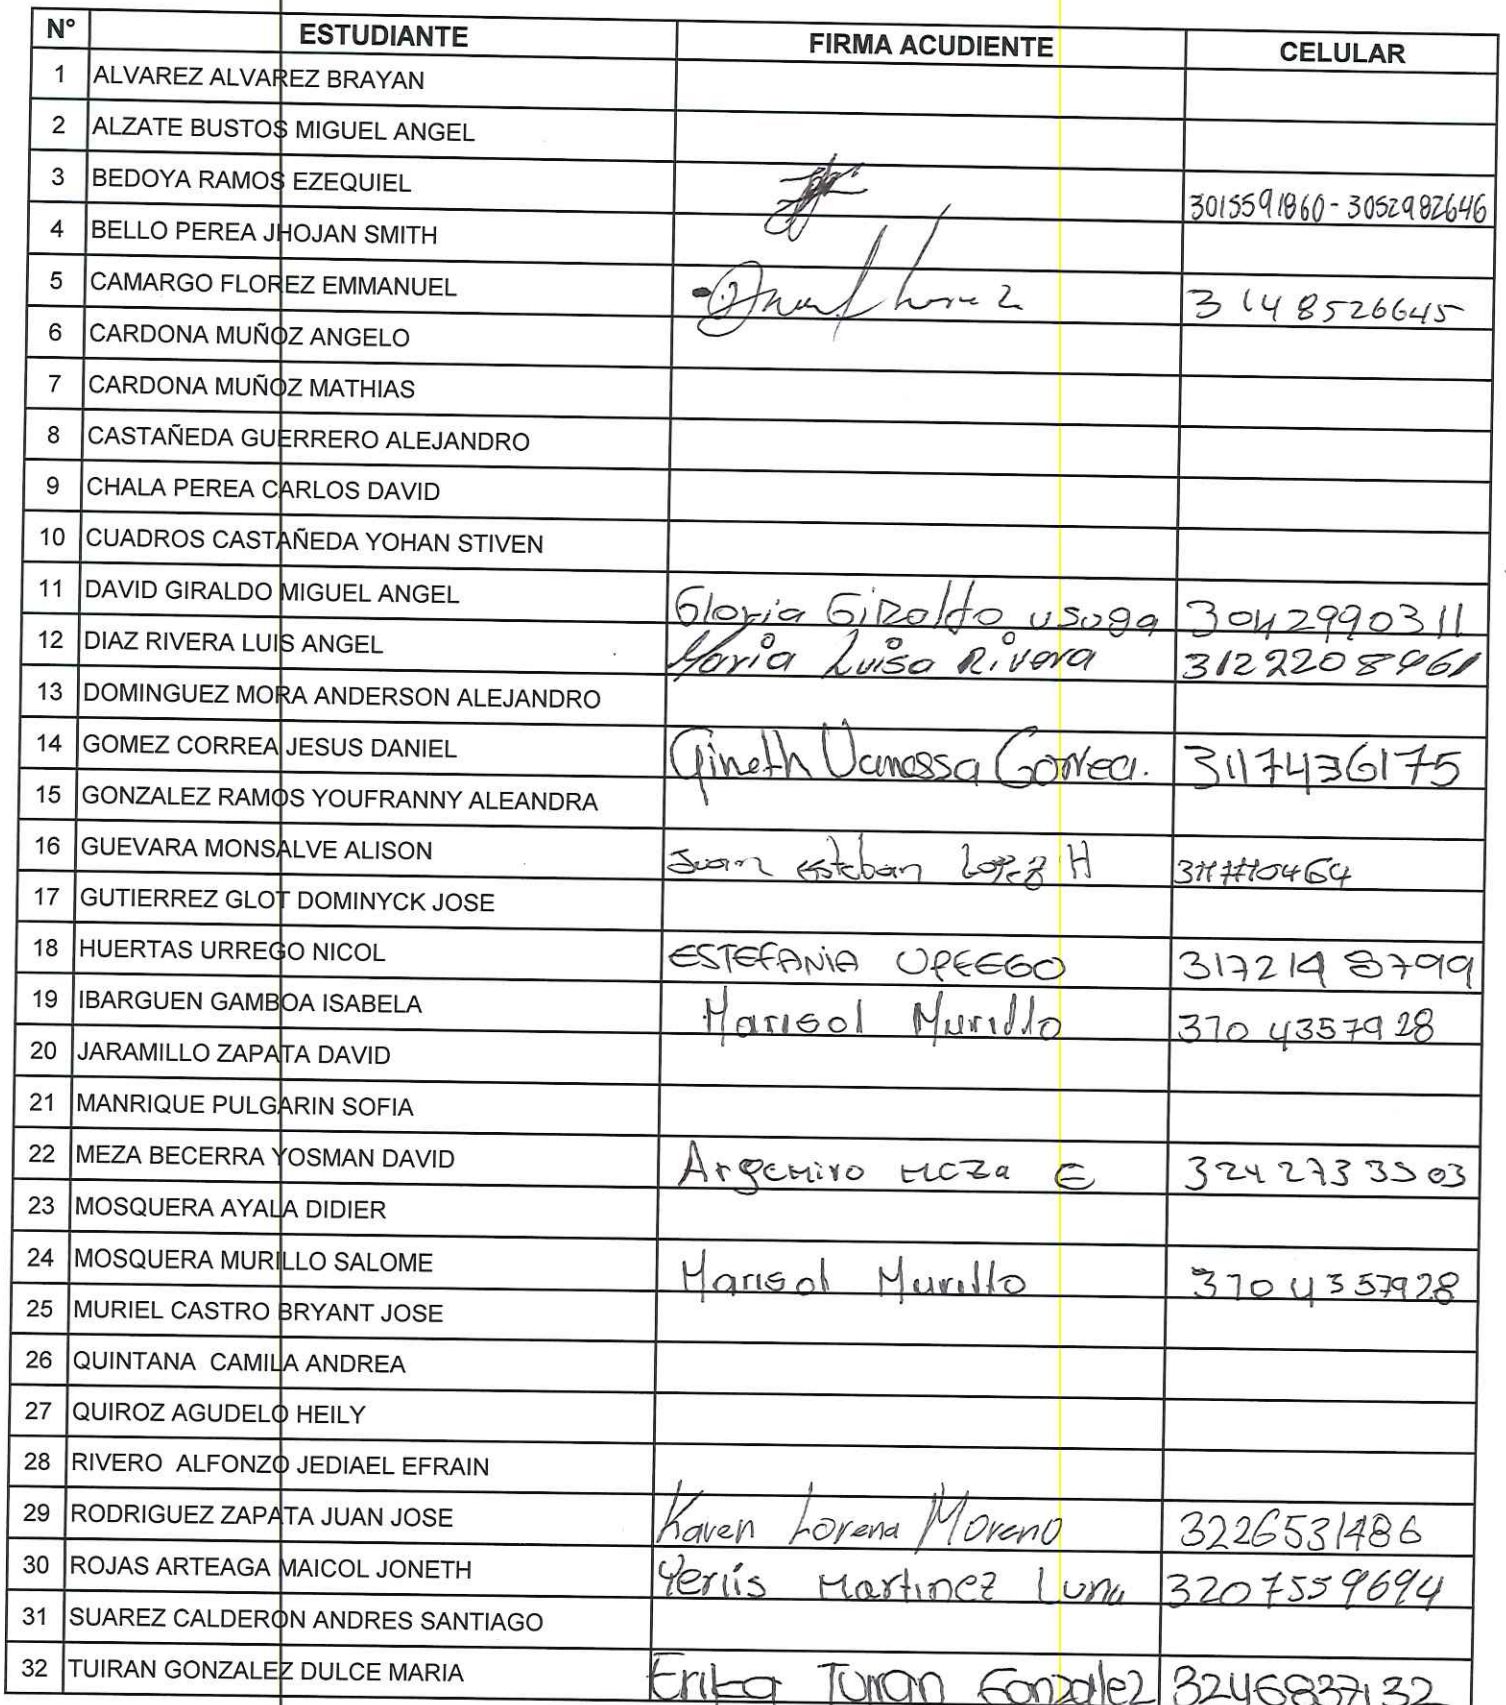 N° ESTUDIANTE FIRMA ACUDIENTE CELULAR
1 ALVAREZ ALVAREZ BRAYAN
2 ALZATE BUSTOS MIGUEL ANGEL
3 BEDOYA RAMOS EZEQUIEL 3015591860 - 3052982646
4 BELLO PEREA JHOJAN SMITH
5 CAMARGO FLOREZ EMMANUEL 3148526645
6 CARDONA MUÑOZ ANGELO
7 CARDONA MUÑOZ MATHIAS
8 CASTAÑEDA GUERRERO ALEJANDRO
9 CHALA PEREA CARLOS DAVID
10 CUADROS CASTAÑEDA YOHAN STIVEN
11 DAVID GIRALDO MIGUEL ANGEL Gloria Giraldo usuga 3042990311
12 DIAZ RIVERA LUIS ANGEL Maria Luisa Rivera
13 DOMINGUEZ MORA ANDERSON ALEJANDRO
14 GOMEZ CORREA JESUS DANIEL Gineth Vanessa Correa. 3117436175
15 GONZALEZ RAMOS YOUFRANNY ALEANDRA
16 GUEVARA MONSALVE ALISON Juan esteban Lopez H
17 GUTIERREZ GLOT DOMINYCK JOSE
18 HUERTAS URREGO NICOL ESTEFANIA URREGO 3172148799
19 IBARGUEN GAMBOA ISABELA Marisol Murillo 3704357928
20 JARAMILLO ZAPATA DAVID
21 MANRIQUE PULGARIN SOFIA
22 MEZA BECERRA YOSMAN DAVID Argemiro Meza E 3242733503
23 MOSQUERA AYALA DIDIER
24 MOSQUERA MURILLO SALOME Marisol Murillo 3704357928
25 MURIEL CASTRO BRYANT JOSE
26 QUINTANA CAMILA ANDREA
27 QUIROZ AGUDELO HEILY
28 RIVERO ALFONZO JEDIAEL EFRAIN
29 RODRIGUEZ ZAPATA JUAN JOSE Karen Lorena Moreno 3226531486
30 ROJAS ARTEAGA MAICOL JONETH Yeriis Martinez Luna 3207559694
31 SUAREZ CALDERON ANDRES SANTIAGO
32 TUIRAN GONZALEZ DULCE MARIA Erika Tuiran Gonzalez 3246837132